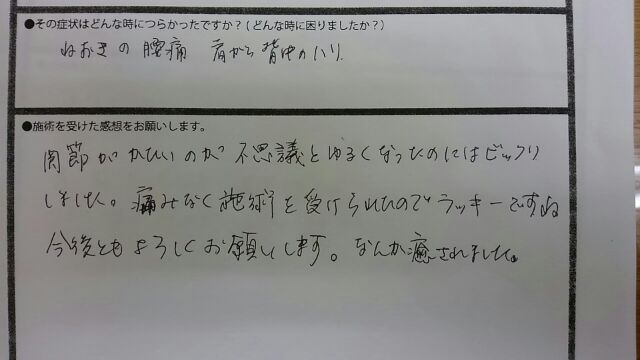 ●その症状はどんな時につらかったですか？(どんな時に困りましたか？)
ねおきの腰痛 肩から背中のハリ
●施術を受けた感想をお願いします。
関節がかたいのが不思議とゆるくなったのにはビックリ
しました。痛みなく施術を受けられたのでラッキーですね
今後ともよろしくお願いします。なんか癒されました。